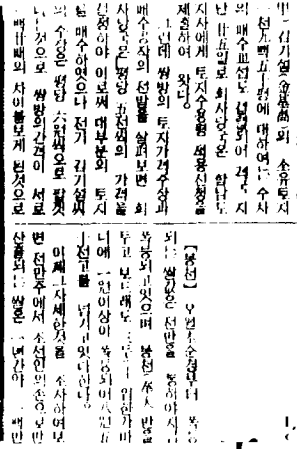 김기섭(金基燮)의 소유토지
一천九백五十평에 대하여는 수차
의 매수교섭도 결렬되어 지
난 廿五일로 회사당국은 함남도
지사에게 토지수용령 적용신청을
제출하여 왓다
그런데 쌍방의 토지가격주장과
매수공작의 전말을 살펴보면 회
사당국은 평당 五전씩의 가격을
작정하야 이로써 대부분의 토지
를 매수하엿으나 전기 김기섭씨
의 주장은 평당 六원씩으로 팔겟
다는것으로 쌍방의 간격이 서로
一백廿배의 차이를 보게 된것으로
【봉천】 초순경부터 폭등
되는 쌀값은 전만을 통하야
폭등되고잇으며 봉천(奉天)
보드래도 한가마
니에 一원이상이 폭등되여 八원五
十전고를 넘기고잇다한다
이제 그자세한것을 조사하여보
면 전만주에서 조선인의 손으로만
산출되는 쌀은 一년간에 一백만